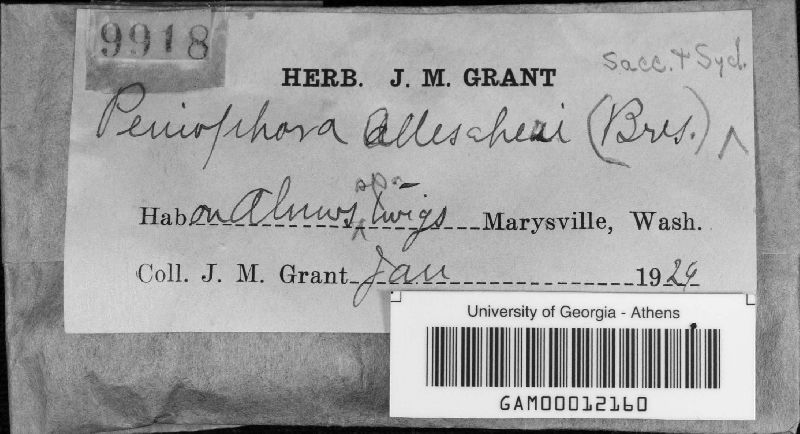 9918
HERB. J. M. GRANT
Sacc. & Syd.
Peniophora Allescheri (Bres.) ^
Hab on Alnus spp. twigs Marysville, Wash.
Coll. J. M. Grant Jan 1929
University of Georgia - Athens
GAM00012160